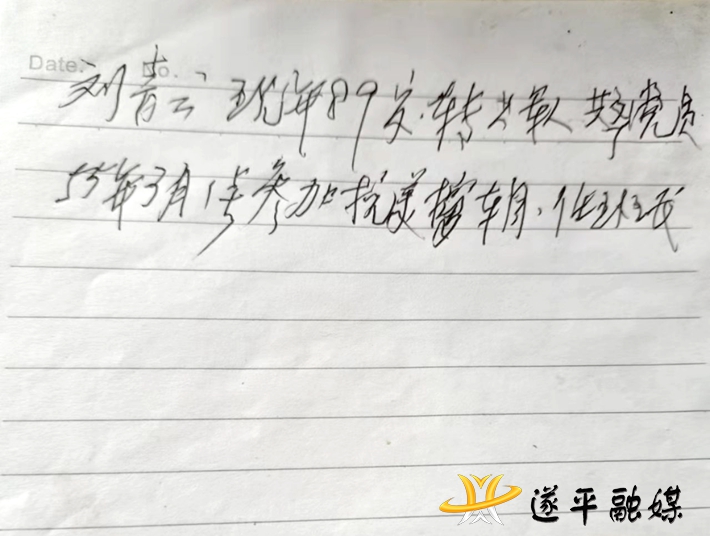 Date:
No.
刘青云 现年89岁.转业军人 共产党员
55年3月1号参加抗美援朝.任
遂平融媒